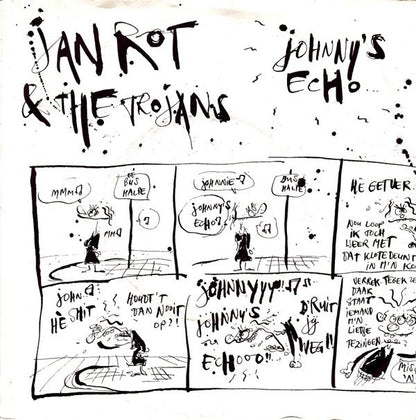 JAN ROT
& THE TROJANS
JOHNNY'S
ECHO
MMM
DE
BUS
HALTE
MM
JOHNNIE
JOHNNY'S
ECHO
BUS
HALTE
HE GETVER
NOU LOOP
IK TOCH
WEER MET
DAT KLOTE DEUNT
IN M'N KO
JOHN
HE SHIT
HOUDT'T
DAN NOOIT
OP?!
JOHNNYYY!!
JOHNNY'S
ECHOOO!!
D'RUIT
JIJ
WEG!!
VERREK TEGEN ZE
DAAR
STAAT
IEMAND
M'N
LIEDJE
TE ZINGEN
MIS